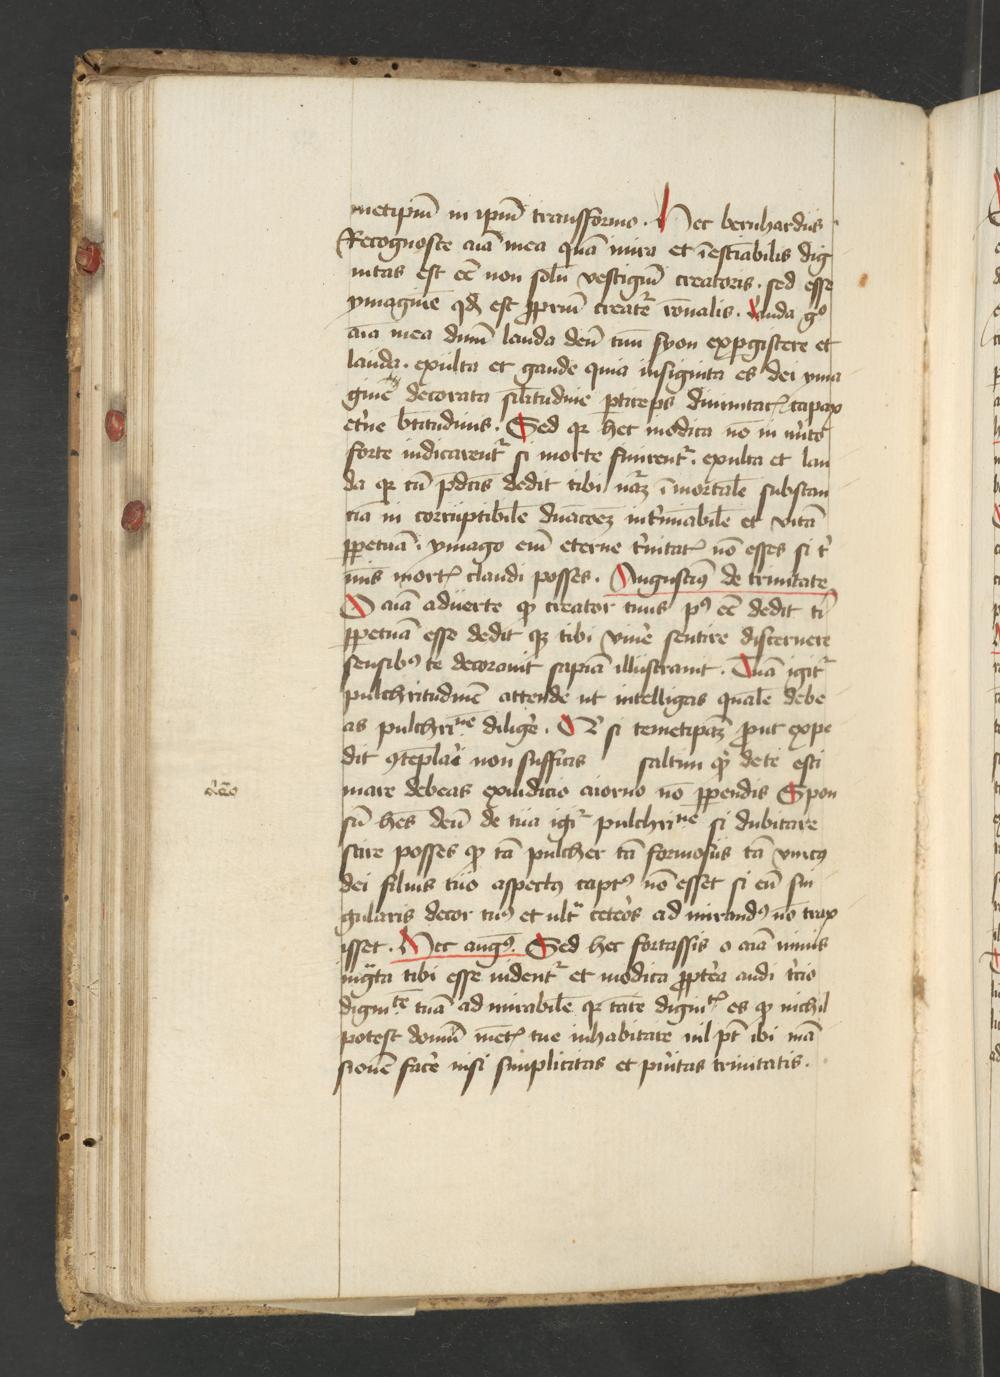 metipm̄ in ipm̄ transformo. Hec bernhardus
Recognosce aīa mea quā mira et īestiābilis dig
nitas est eē non solū vestigiū creatoris. sed esse
ymaginē qd̕ est ꝓpriū creatᵉ rōnalis. lauda gᵒ
aīa mea dn̄m lauda deū tuū syon expgistere et
lauda. exulta et gaude quia insignita es dei yma
ginē decorata silitudine ꝑticeps diuinitatꝭ capax
et̕ne btitudinis. Sed qꝛ hec modica nō in mito
forte indicarentᷣ si morte finirentᷣ. exulta et lau
da qꝛ cū p̄dc̄is dedit tibi nāꝫ īmortalē substan
ciā in corruptibilē duracōeꝫ int̕minabilē et vitā
ꝑpetuā. ymago em̄ eterne t̕nitatꝭ nō esses si t̕
minis mortꝭ claudi posses. Augustinꝯ de trinitate
O aīa aduerte qꝫ creator tuus pꝯ eē dedit ti
ꝑpetuā esse dedit qꝫ tibi viuē sentire discernere
sensibꝯ te decorauit sapīa illustrauit. Tuā igitᷣ
pulchritudinē attende ut intelligas qualē debe
as pulchriⁿᵉ diligē. Qᷓ si temetipaꝫ prout expe
dit ꝯtēplari non sufficis saltim qᷓ de te esti
mare debeas ex iudicio aīorno nō ꝑpendis Spon
sū hēs deū de tua igiᷣ pulchriⁿᵉ si dubitare
scire posses qꝫ tā pulcher tā formosus tā vnicꝯ
dei filius tuo aspectu captꝯ nō esset si eū sin
gularis decor tuꝯ et ultᷓ ceteros ad mirandꝯ nō trax
isset. Hec augꝯ. Sed hec fortassis o aīa minus
mᷓgta tibi esse uidentᷣ et modica ꝓpt̕ea audi t̕cio
digniᵗᵉ tuā ad mirabilē qꝛ tāte digniᵗꝭ es qꝫ nichil
potest domū mētꝭ tue inhabitare nil pt̄ ibi mā
sionē facē nisi simplicitas et puritas trinitatis.